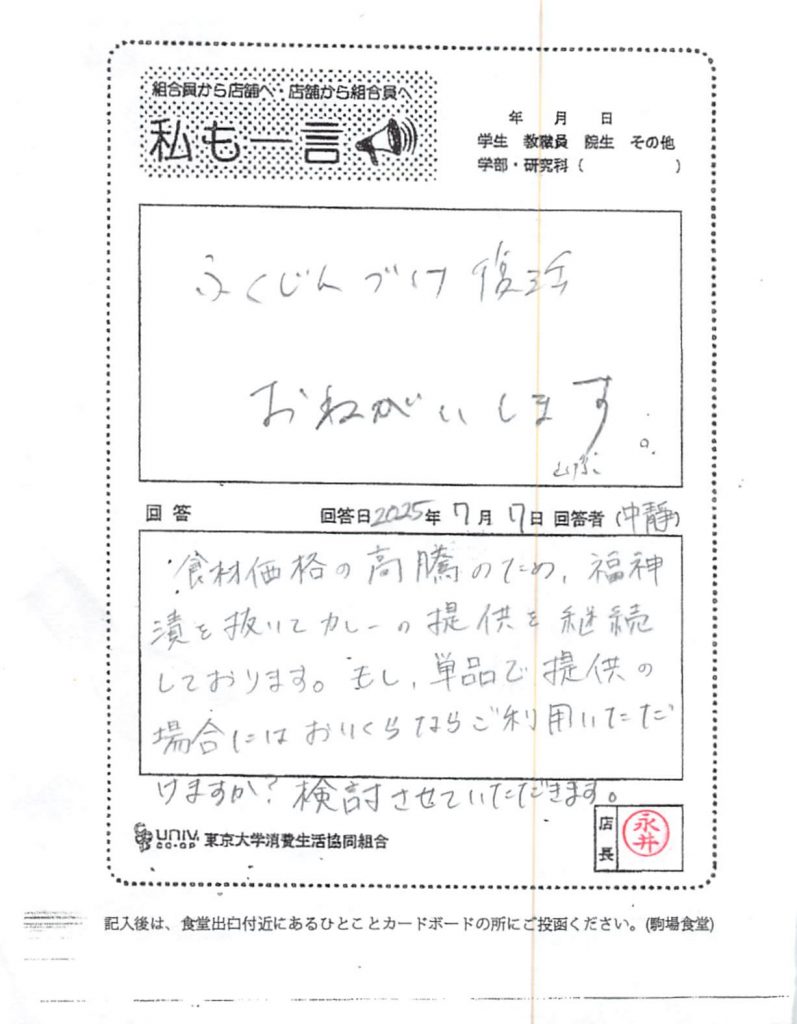 組合員から店舗へ 店舗から組合員へ
私も一言
年 月 日
学生 教職員 院生 その他
学部・研究科( )
ふくじんづけ復活
おねがいします。
回答 回答日2025年7月17日 回答者(中静)
食材価格の高騰のため、福神
漬を抜いてカレーの提供を継続
しております。もし、単品で提供の
場合にはおいくらならご利用いただ
けますか?検討させていただきます。
UNIV.
CO-OP 東京大学消費生活協同組合
店長
永井
記入後は、食堂出口付近にあるひとことカードボードの所にご投函ください。(駒場食堂)